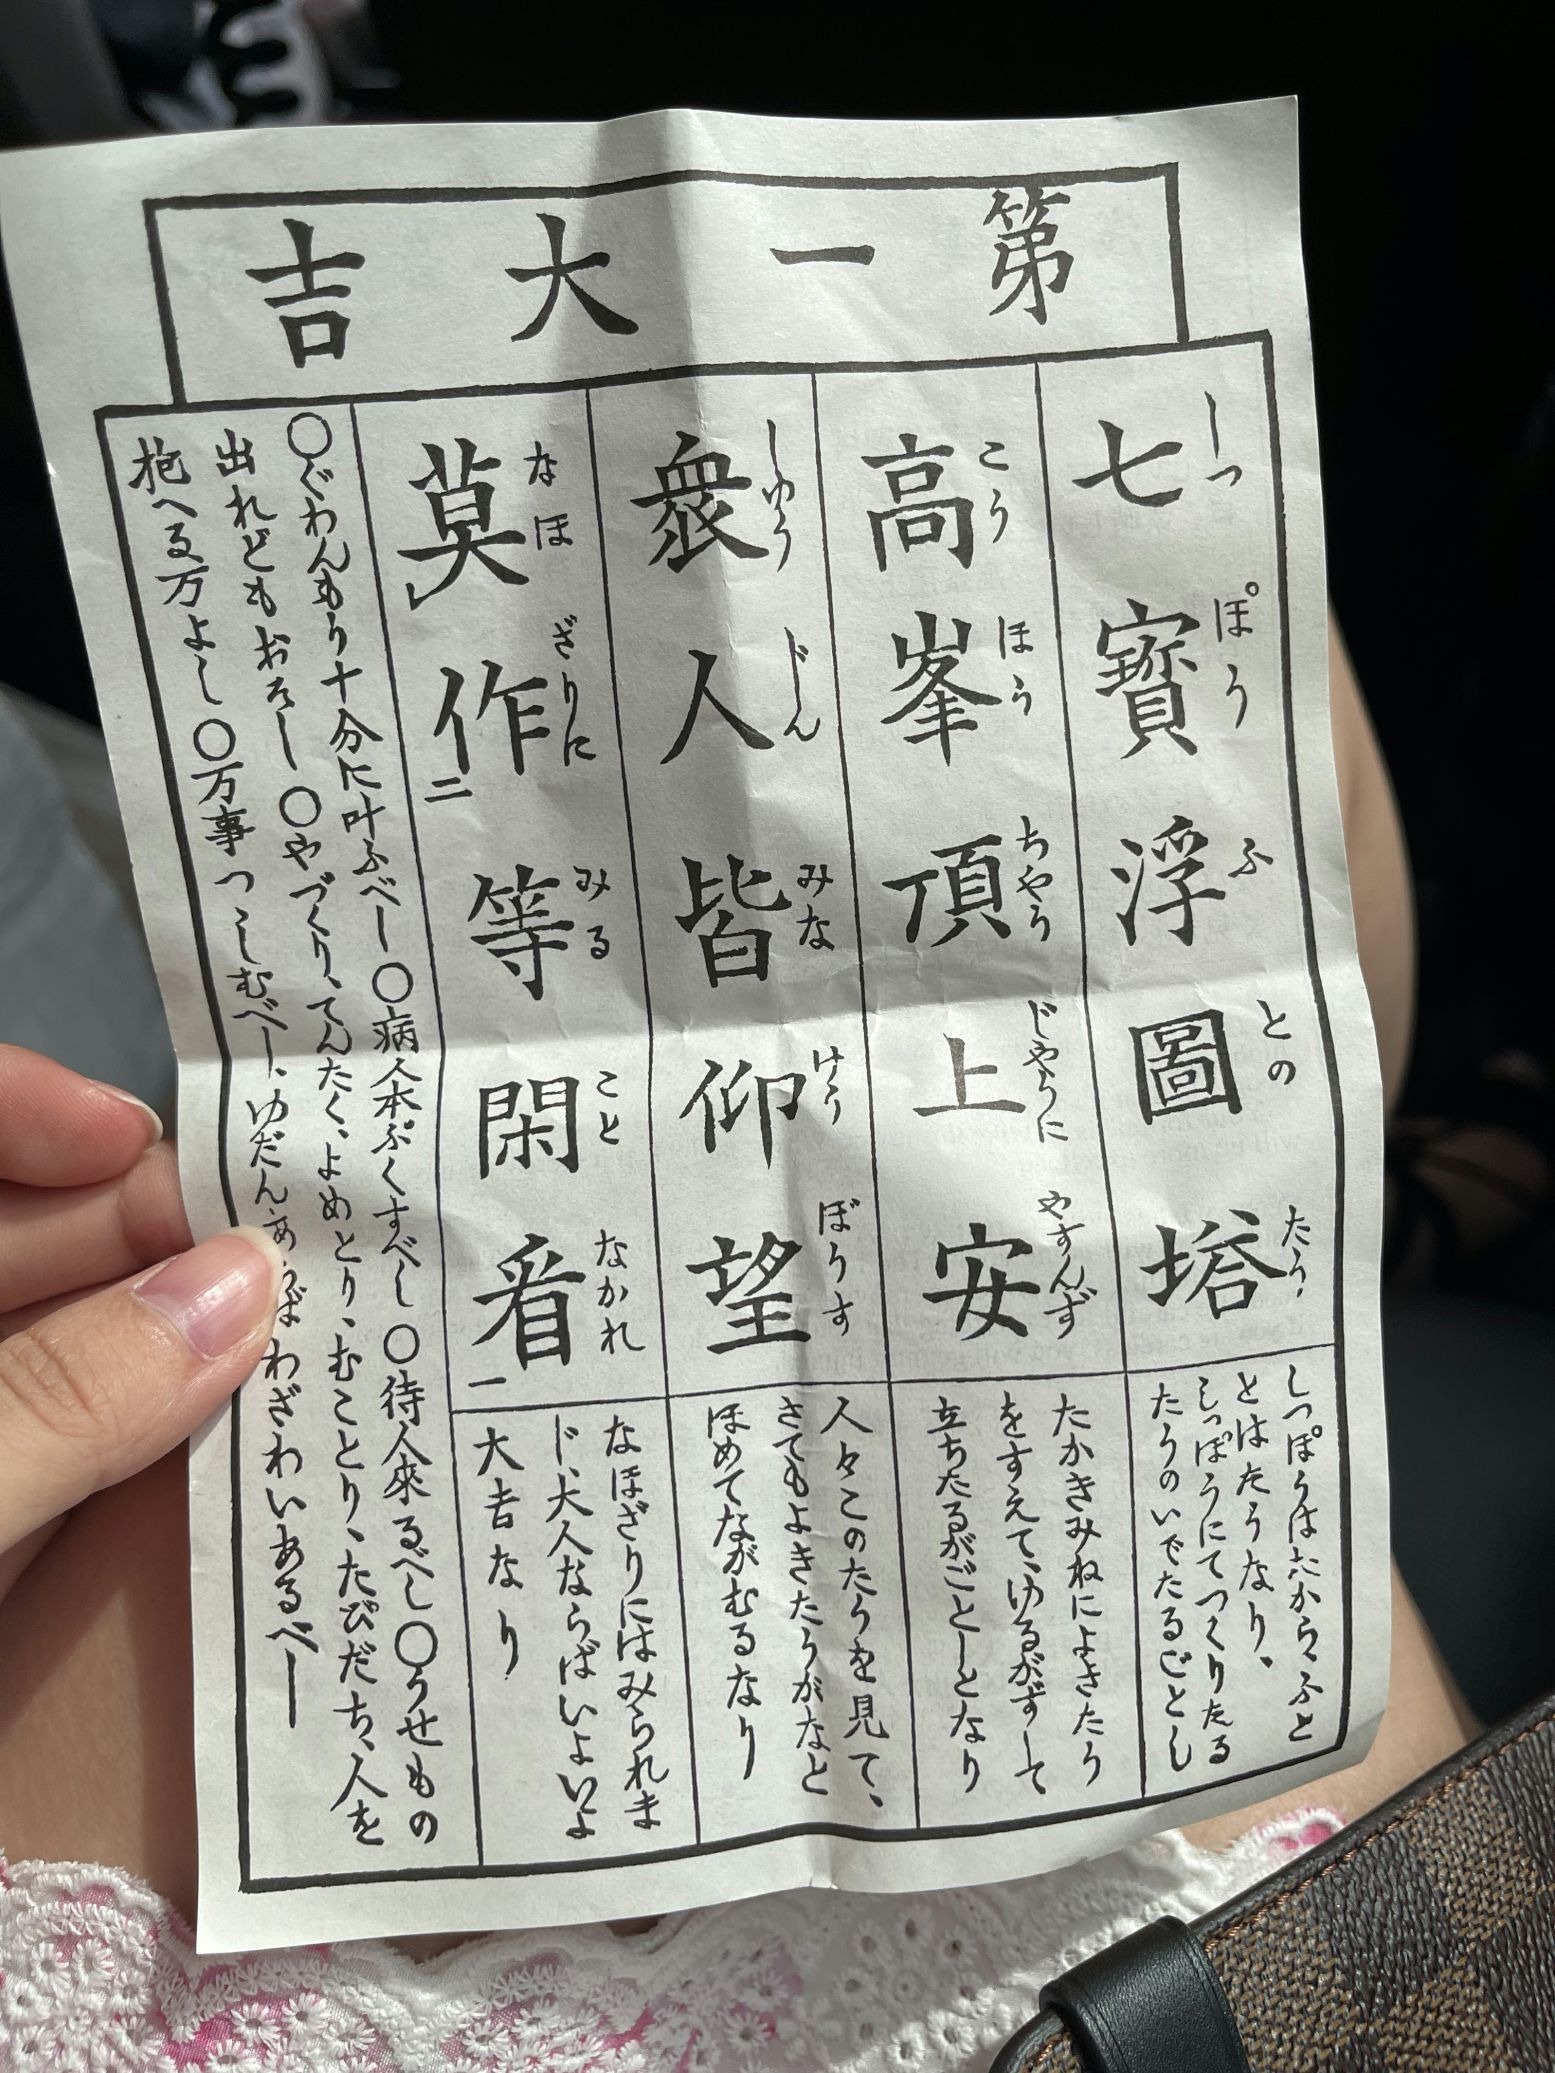 第一大吉
七寶浮圖塔
しつぽうふとのたう
高峯頂上安
こうほうちやうじやうにやすんず
衆人皆仰望
しゆうじんみなけうぼうす
莫作二等閑看一
なほざりにみることなかれ
しつぽうはたから、ふと
とはたうなり、
しつぽうにてつくりたる
たうのいでたるごとし
たかきみねによきたう
をすえて、ゆるがずして
立ちたるがごとしとなり
人々このたうを見て、
さてもよきたうがなと
ほめてながむるなり
なほざりにはみられま
じ、大人ならばいよいよ
大吉なり
〇ぐわんもう十分に叶ふべし〇病人本ぷくすべし〇待人來るべし〇うせもの
出れどもおそし〇やづくり、てんたく、よめとり、むことり、たびだち、人を
抱へる万よし〇万事つゝしむべし、ゆだんあらばわざわいあるべし